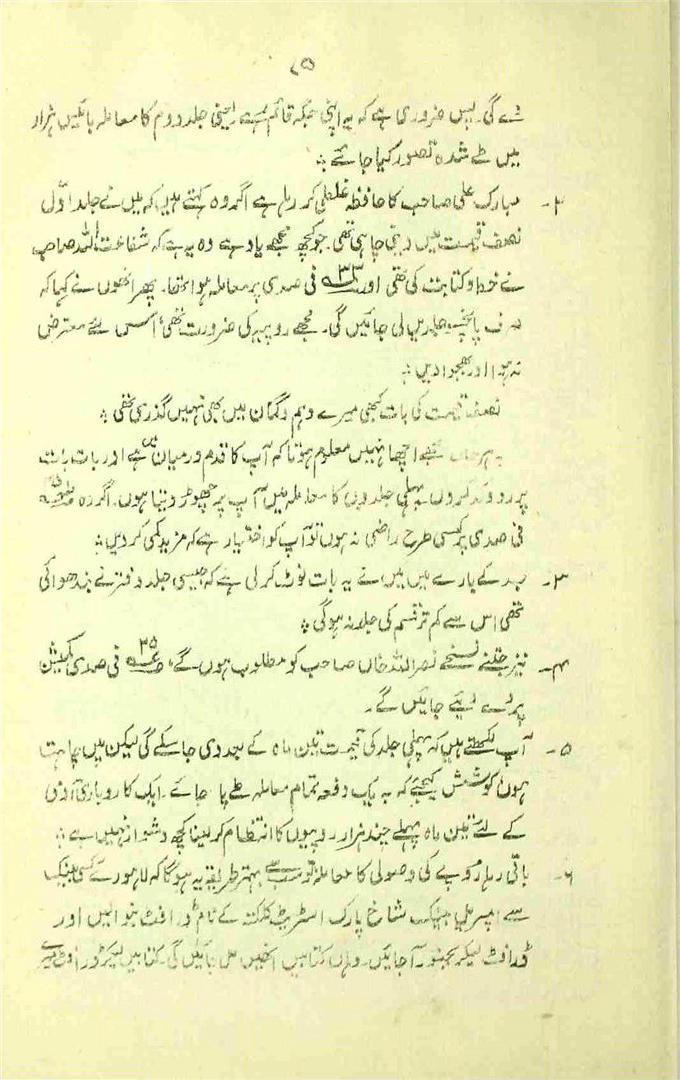 ۸۵
دے گی۔ پس ضروری ہے کہ یہ اپنی جگہ قائم رہے یعنی جلد دوم کا معاملہ بائیس ہزار
میں طے شدہ تصور کیا جائے :
۲۔ مبارک علی صاحب کا حافظہ غلطی کر رہا ہے اگر وہ کہتے ہیں کہ میں نے جلد اوّل
نصف قیمت میں دینی چاہی تھی۔ جو کچھ مجھے یاد ہے وہ یہ ہے کہ شفاعت اللہ صاحب
نے خط و کتابت کی تھی اور ۳۳ فی صدی پر معاملہ ہوا تھا۔ پھر انھوں نے کہا کہ
صرف پانچسو جلدیں لی جائیں گی۔ مجھے روپیہ کی ضرورت تھی، اس لئے معترض
نہ ہوا اور بھجوا دیں :
نصف قیمت کی بات کبھی میرے وہم و گمان میں بھی نہیں گذری تھی :
بہرحال مجھے اچھا نہیں معلوم ہوتا کہ آپ کا قدم درمیان میں ہے اور بات بات
پر رد و کد کروں۔ پہلی جلدوں کا معاملہ میں آپ پر چھوڑ دیتا ہوں۔ اگر وہ
فی صدی پر کسی طرح راضی نہ ہوں تو آپ کو اختیار ہے کہ مزید کمی کر دیں :
۳۔ جلد کے بارے میں میں نے یہ بات نوٹ کر لی ہے کہ جیسی جلد دفتر نے بندھوائی
تھی اس سے کم تر قسم کی جلد نہ ہوگی :
۴۔ نیز جتنے نسخے نصر اللہ خاں صاحب کو مطلوب ہوں گے، ۳۵ فی صدی کمیشن
پر دے دیئے جائیں گے۔
۵۔ آپ لکھتے ہیں کہ پہلی جلد کی قیمت تین ماہ کے بعد دی جا سکے گی لیکن میں چاہتا
ہوں کوشش کیجئے کہ بہ یک دفعہ تمام معاملہ طے پا جائے۔ ایک کاروباری آدمی
کے لئے تین ماہ پہلے چند ہزار روپیوں کا انتظام کر لینا کچھ دشوار نہیں ہے :
۶۔ باقی رہا روپے کی وصولی کا معاملہ تو سب سے بہتر طریقہ یہ ہوگا کہ لاہور کے کسی بینک
سے امپریل بینک شاخ پارک اسٹریٹ کلکتہ کے نام ڈرافٹ بنوا لیں اور
ڈرافٹ لیکر بجنور آ جائیں۔ وہاں کتابیں انھیں مل جائیں گی۔ کتابیں لیکر ڈرافٹ میرے